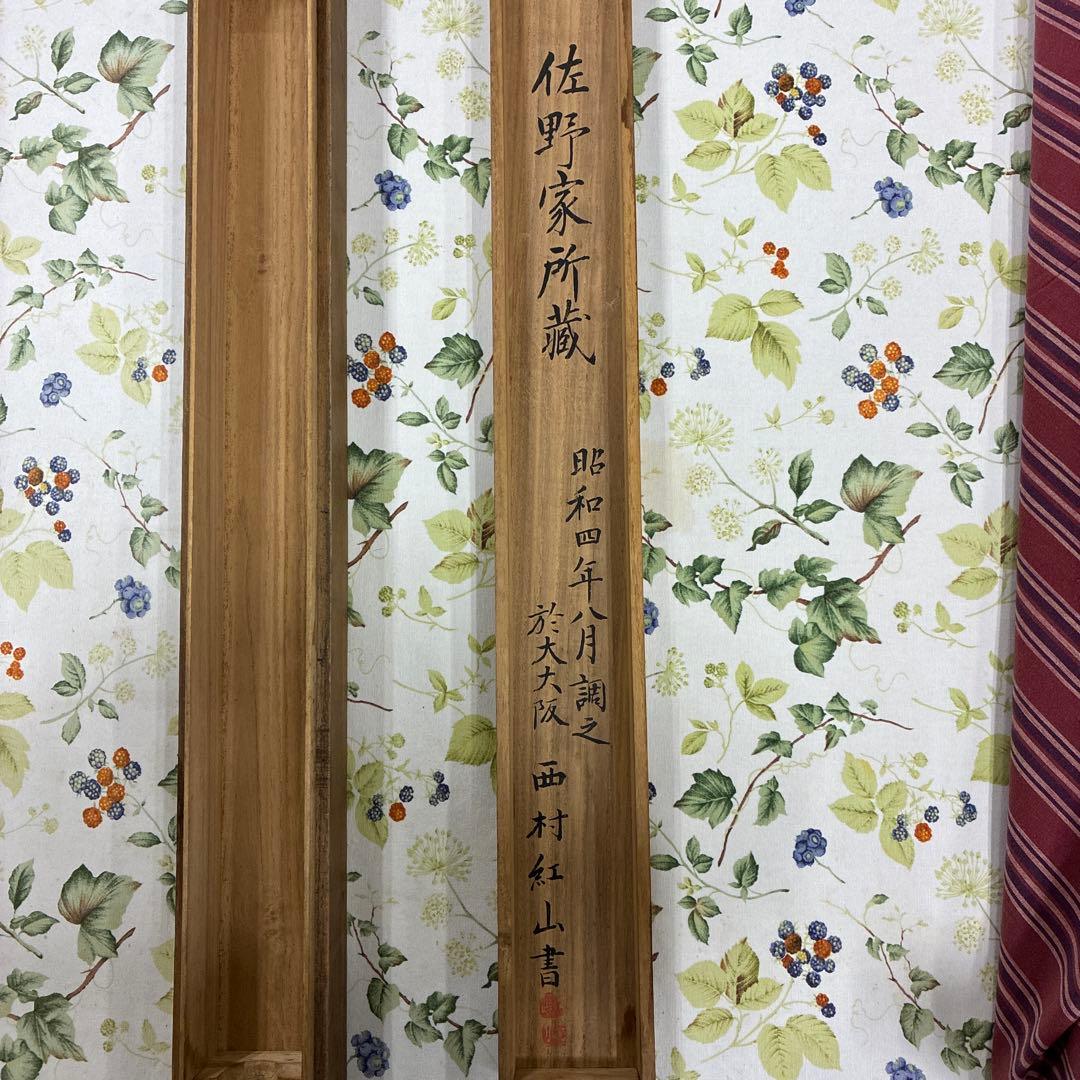 佐野家所藏
昭和四年八月調之
於大大阪
西村紅山書